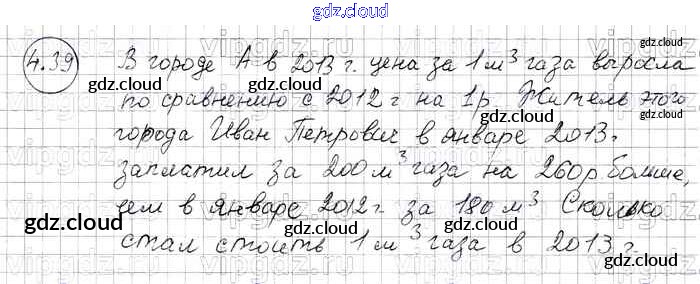 gdz.cloud
4.39 В городе А в 2013 г. цена за 1 м³ газа выросла
по сравнению с 2012 г на 1р. Житель этого
города Иван Петрович в январе 2013г.
заплатил за 200 м³ газа на 260р больше,
чем в январе 2012г. за 180 м³ Сколько
стал стоить 1 м³ газа в 2013 г.
gdz.cloud
gdz.cloud
gdz.cloud
gdz.cloud
gdz.cloud
gdz.cloud
gdz.cloud